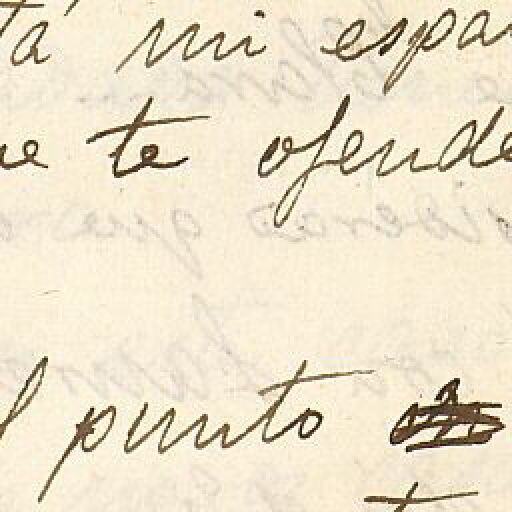 tá mi espa
ue te ofende
l punto